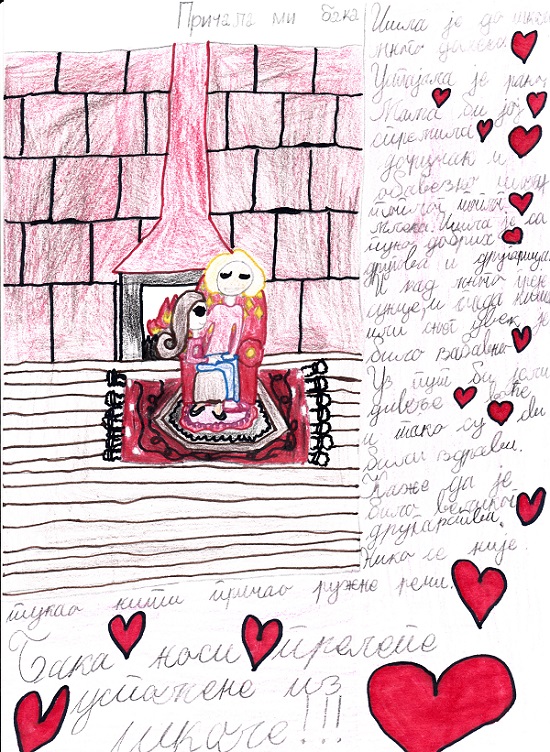 Причала ми бака
Ишла је до школе
много далеко.
Устајала је рано
Мама би јој
спремила
доручак и
обавезно шољу
топлог
млека. Ишла је са
пуно добрих
другова и другарица
И кад много греје
сунце и када киша
или снег увек је
било забавно
Уз пут би јели
дивље воће
и тако су сви
били здрави.
Каже да је
било великог
другарства.
Нико се није
тукао нити причао ружне речи.
Бака носи прелепе
успомене из
школе!!!